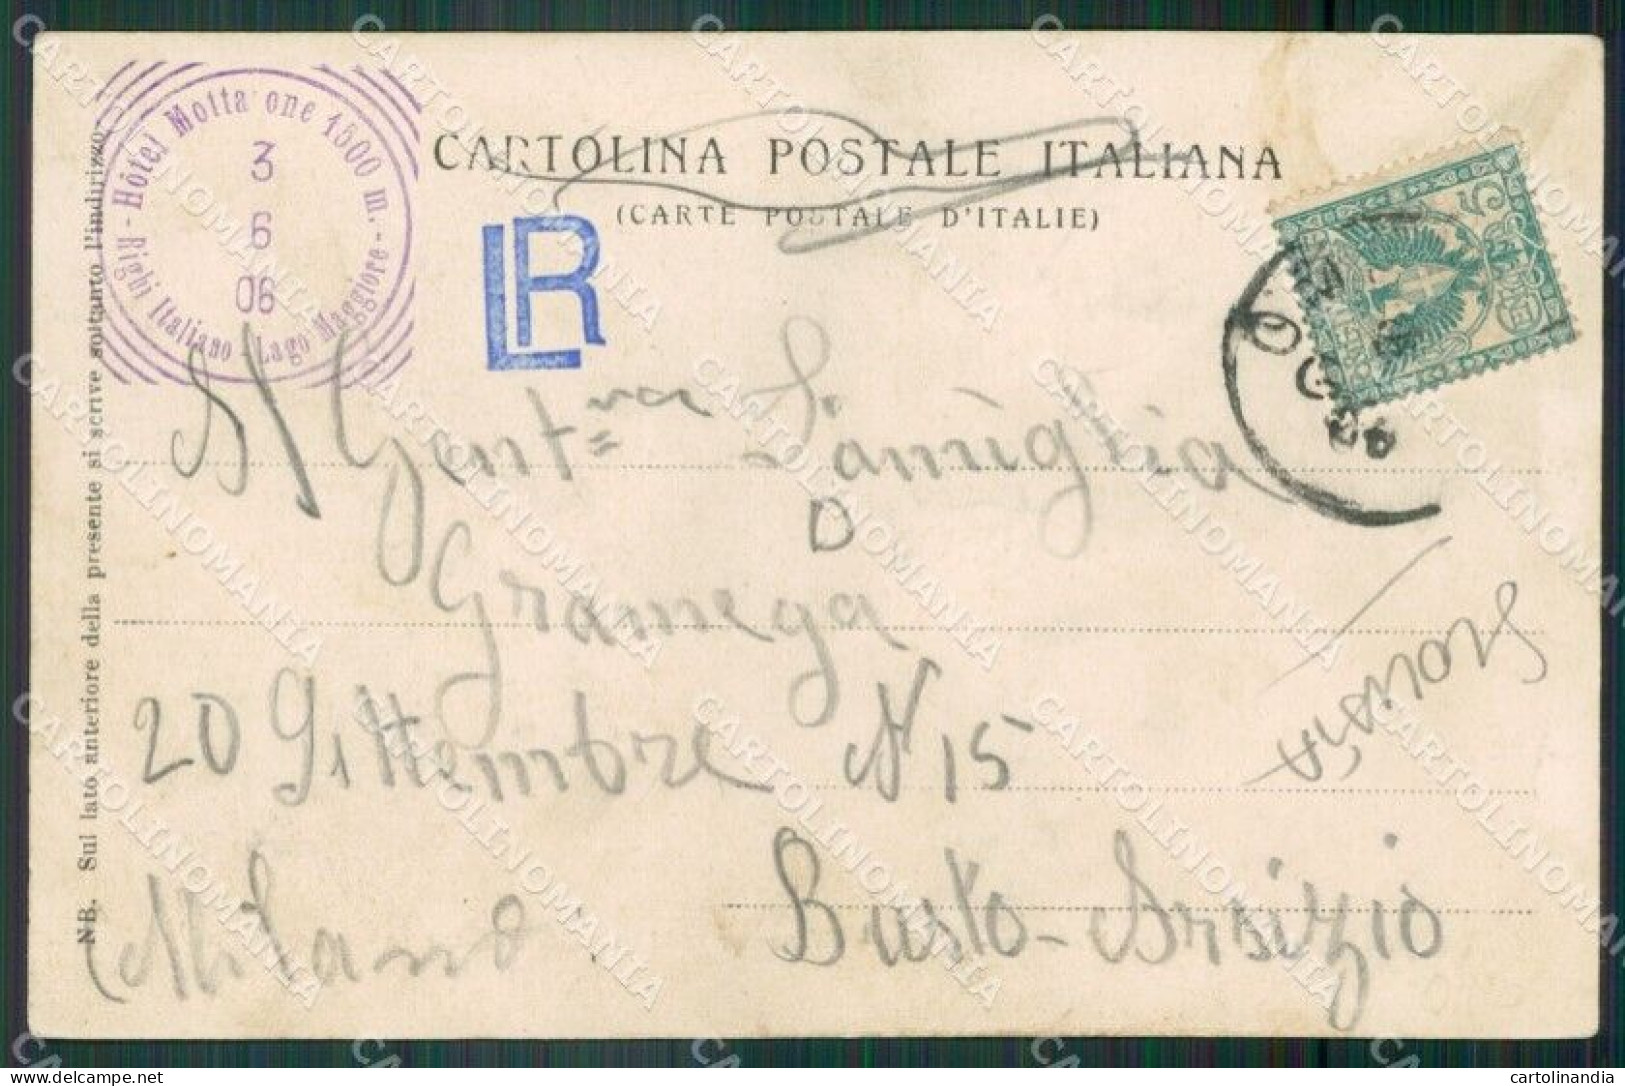 Hôtel Mottarone 1500 m. -
3
6
06
- Righi Italiano - Lago Maggiore -
CARTOLINA POSTALE ITALIANA
(CARTE POSTALE D'ITALIE)
LR
NB. Sul lato anteriore della presente si scrive soltanto l'indirizzo.
All Gent.ma Famiglia
D
Gramega
20 Settembre N 15
Milano.
Busto-Arsizio
CARTOLINOMANIA
cartolinandia